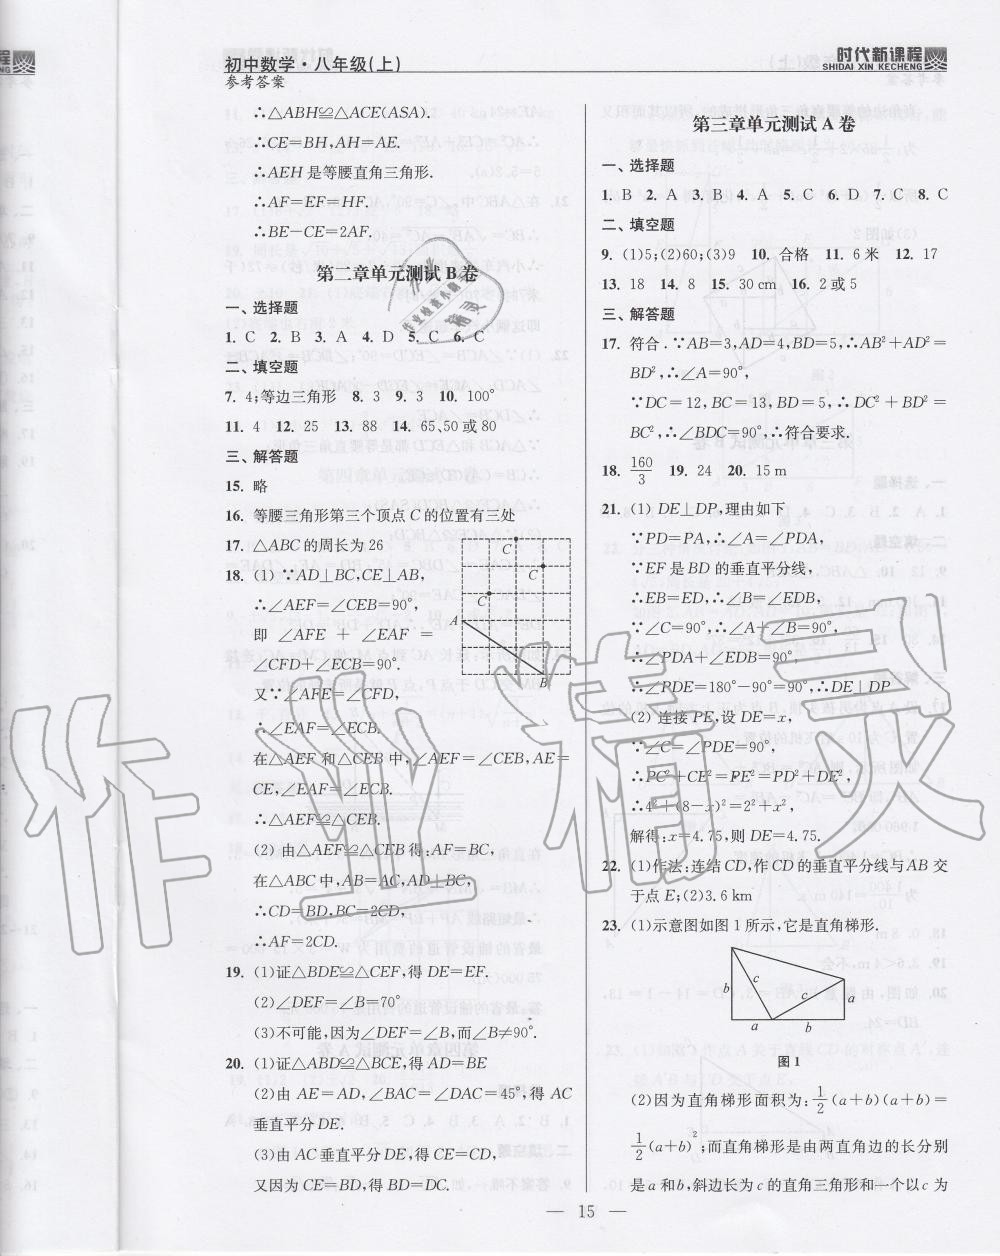 初中数学·八年级(上)
参考答案
时代新课程
SHIDAI XIN KECHENG
∴△ABH≌△ACE(ASA).
∴CE=BH,AH=AE.
∴△AEH是等腰直角三角形.
∴AF=EF=HF.
∴BE-CE=2AF.
第二章单元测试B卷
一、选择题
1. C 2. B 3. A 4. D 5. C 6. C
二、填空题
7. 4;等边三角形 8. 3 9. 3 10. 100°
11. 4 12. 25 13. 88 14. 65、50或80
三、解答题
15. 略
16. 等腰三角形第三个顶点C的位置有三处
17. △ABC的周长为26
18. (1)∵AD⊥BC,CE⊥AB,
∴∠AEF=∠CEB=90°,
即∠AFE+∠EAF=
∠CFD+∠ECB=90°.
又∵∠AFE=∠CFD,
∴∠EAF=∠ECB.
在△AEF和△CEB中,∠AEF=∠CEB,AE=
CE,∠EAF=∠ECB.
∴△AEF≌△CEB.
(2)由△AEF≌△CEB得:AF=BC,
在△ABC中,AB=AC,AD⊥BC,
∴CD=BD,BC=2CD,
∴AF=2CD.
C
C
C
A
B
19. (1)证△BDE≌△CEF,得DE=EF.
(2)∠DEF=∠B=70°
(3)不可能,因为∠DEF=∠B,而∠B≠90°.
20. (1)证△ABD≌△BCE,得AD=BE
(2)由AE=AD,∠BAC=∠DAC=45°,得AC
垂直平分DE.
(3)由AC垂直平分DE,得CE=CD,
又因为CE=BD,得BD=DC.
第三章单元测试A卷
一、选择题
1. B 2. A 3. B 4. A 5. C 6. D 7. C 8. C
二、填空题
9. (1)5;(2)60;(3)9 10. 合格 11. 6米 12. 17
13. 18 14. 8 15. 30 cm 16. 2或5
三、解答题
17. 符合.∵AB=3,AD=4,BD=5,∴AB²+AD²=
BD²,∴∠A=90°,
∵DC=12,BC=13,BD=5,∴DC²+BD²=
BC²,∴∠BDC=90°,∴符合要求.
18. 160/3 19. 24 20. 15 m
21. (1)DE⊥DP,理由如下
∵PD=PA,∴∠A=∠PDA,
∵EF是BD的垂直平分线,
∴EB=ED,∴∠B=∠EDB,
∵∠C=90°,∴∠A+∠B=90°,
∴∠PDA+∠EDB=90°,
∴∠PDE=180°-90°=90°,∴DE⊥DP
(2)连接PE,设DE=x,
∵∠C=∠PDE=90°,
∴PC²+CE²=PE²=PD²+DE²,
∴4²+(8-x)²=2²+x²,
解得:x=4.75,则DE=4.75.
22. (1)作法:连结CD,作CD的垂直平分线与AB交
于点E;(2)3.6 km
23. (1)示意图如图1所示,它是直角梯形.
b
c
c
a
a
b
图1
(2)因为直角梯形面积为:1/2(a+b)(a+b)=
1/2(a+b)²;而直角梯形是由两直角边的长分别
是a和b,斜边长为c的直角三角形和一个以c为
— 15 —
作业精灵